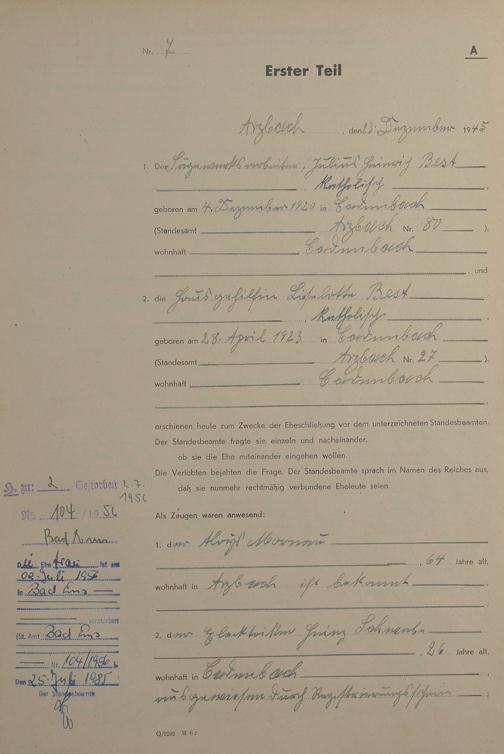 Nr. 7
A
Erster Teil
Arzbach, den 23. Dezember 1945
1. Der Sägewerksarbeiter, Julius Heinrich Best
, katholisch
geboren am 4. Dezember 1920 in Cadenbach
(Standesamt Arzbach Nr. 80 ).
wohnhaft Cadenbach
, und
2. die Hausgehilfin Lieselotte Best
, katholisch
geboren am 28. April 1923 in Cadenbach
(Standesamt Arzbach Nr. 27 ).
wohnhaft Cadenbach
erschienen heute zum Zwecke der Eheschließung vor dem unterzeichneten Standesbeamten.
Der Standesbeamte fragte sie einzeln und nacheinander,
ob sie die Ehe miteinander eingehen wollen.
Die Verlobten bejahten die Frage. Der Standesbeamte sprach im Namen des Reiches aus,
daß sie nunmehr rechtmäßig verbundene Eheleute seien.
Als Zeugen waren anwesend:
1. der Aloys
, 64 Jahre alt,
wohnhaft in Arzbach ist bekannt
2. der Elektriker Heinz
, 26 Jahre alt,
wohnhaft in Cadenbach
ausgewiesen durch Registrierungsschein
H. zu: 2 Gestorben 2.7.
1956
Nr. 104/1956
Bad Ems
Die Ehefrau ist am
02. Juli 1956
in Bad Ems
verstorben
(St. Amt Bad Ems
Nr. 104/1956
Den 25. Juli 1985
Der Standesbeamte